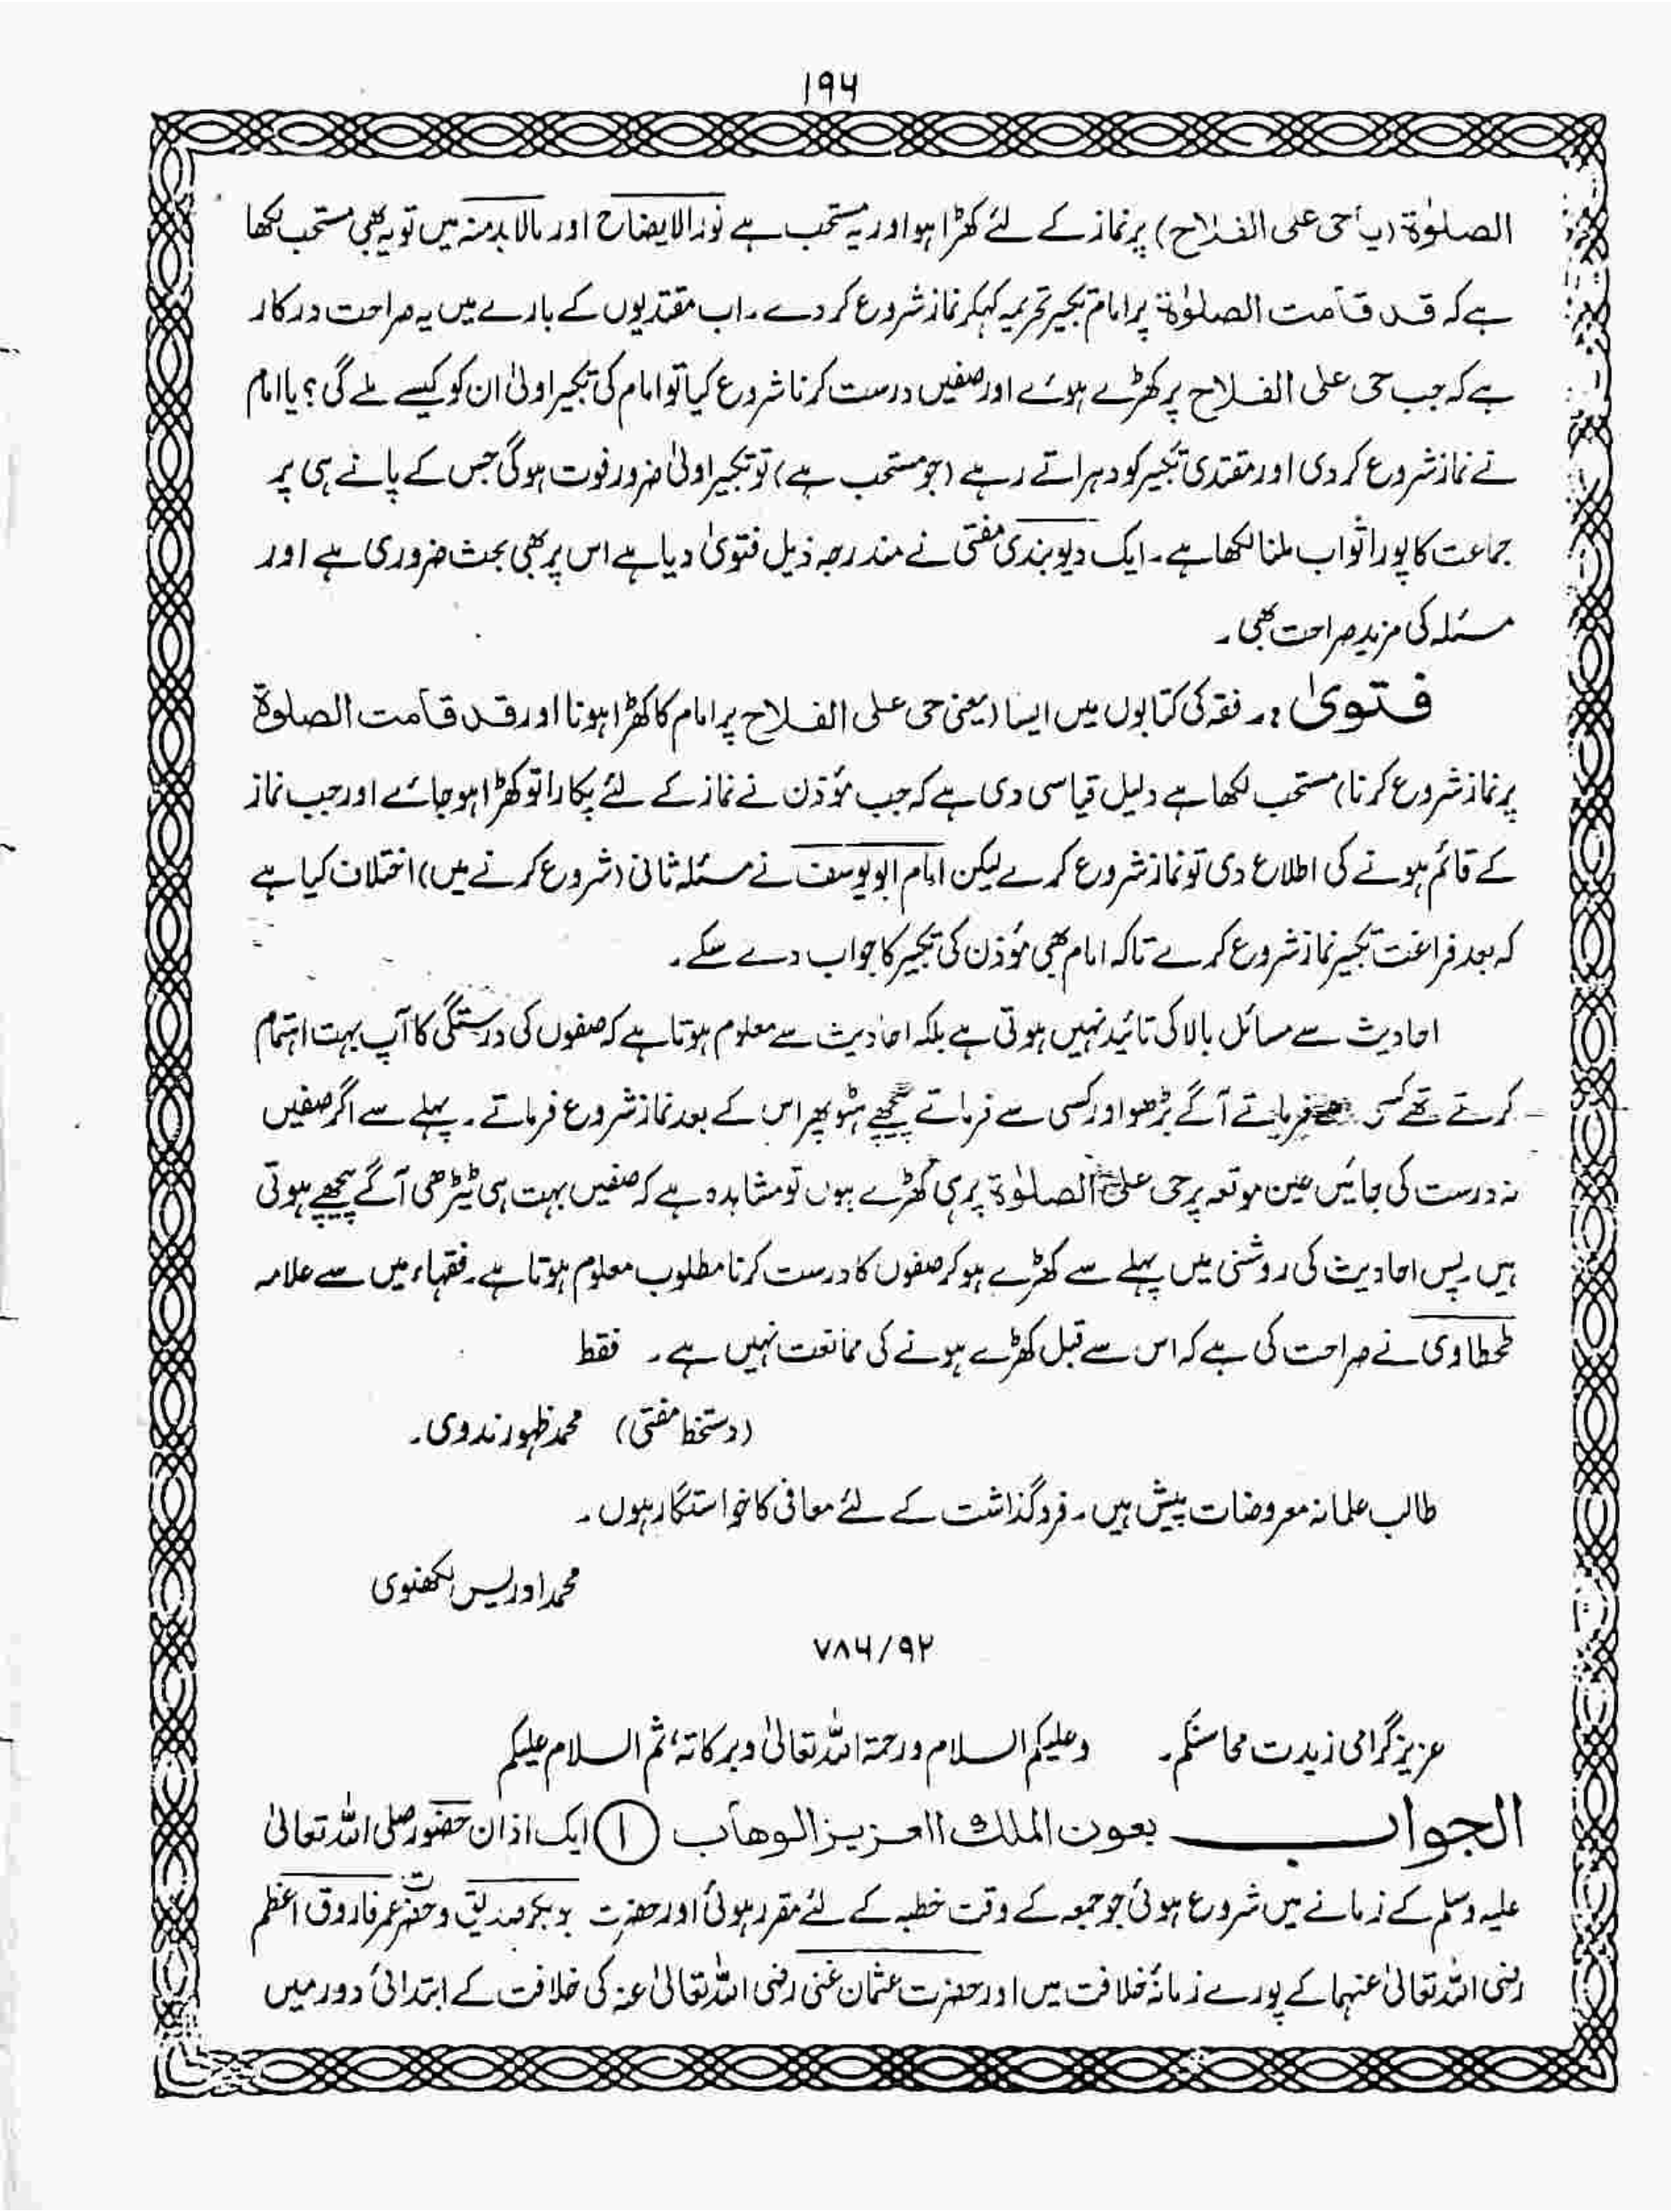 ۱۹۶
الصلوٰۃ (یا حی علی الفلاح) پر نماز کے لئے کھڑا ہو اور یہ مستحب ہے نور الایضاح اور مالا بدمنہ میں تو یہ بھی مستحب لکھا
ہے کہ قد قامت الصلوٰۃ پر امام تکبیر تحریمہ کہکر نماز شروع کر دے۔ اب مقتدیوں کے بارے میں یہ صراحت درکار
ہے کہ جب حی علی الفلاح پر کھڑے ہوئے اور صفیں درست کرنا شروع کیا تو امام کی تکبیر اولیٰ ان کو کیسے ملے گی؟ یا امام
نے نماز شروع کر دی اور مقتدی تکبیر کو دہراتے رہے (جو مستحب ہے) تو تکبیر اولیٰ ضرور فوت ہوگی جس کے پانے ہی پر
جماعت کا پورا ثواب ملنا لکھا ہے۔ ایک دیوبندی مفتی نے مندرجہ ذیل فتویٰ دیا ہے اس پر بھی بحث ضروری ہے اور
مسئلہ کی مزید صراحت بھی۔
فتویٰ :۔ فقہ کی کتابوں میں ایسا (یعنی حی علی الفلاح پر امام کا کھڑا ہونا اور قد قامت الصلوۃ
پر نماز شروع کرنا) مستحب لکھا ہے دلیل قیاسی دی ہے کہ جب مؤذن نے نماز کے لئے پکارا تو کھڑا ہو جائے اور جب نماز
کے قائم ہونے کی اطلاع دی تو نماز شروع کرے لیکن امام ابو یوسف نے مسئلہ ثانی (شروع کرنے میں) اختلاف کیا ہے
کہ بعد فراغت تکبیر نماز شروع کرے تاکہ امام بھی مؤذن کی تکبیر کا جواب دے سکے۔
احادیث سے مسائل بالا کی تائید نہیں ہوتی ہے بلکہ احادیث سے معلوم ہوتا ہے کہ صفوں کی درستگی کا آپ بہت اہتمام
کرتے تھے کسی سے فرماتے آگے بڑھو اور کسی سے فرماتے پیچھے ہٹو پھر اس کے بعد نماز شروع فرماتے۔ پہلے سے اگر صفیں
نہ درست کی جائیں عین موقعہ پر حی علی الصلوٰۃ پر ہی کھڑے ہوں تو مشاہدہ ہے کہ صفیں بہت ہی ٹیڑھی آگے پیچھے ہوتی
ہیں۔ پس احادیث کی روشنی میں پہلے سے کھڑے ہو کر صفوں کا درست کرنا مطلوب معلوم ہوتا ہے۔ فقہاء میں سے علامہ
طحطاوی نے صراحت کی ہے کہ اس سے قبل کھڑے ہونے کی ممانعت نہیں ہے۔ فقط
(دستخط مفتی) محمد ظہور ندوی۔
طالب علمانہ معروضات پیش ہیں۔ فروگذاشت کے لئے معافی کا خواستگار ہوں۔
محمد ادریس لکھنوی
۷۸۶/۹۲
عزیز گرامی زیدت محاسنکم۔ وعلیکم السلام ورحمۃ اللہ تعالیٰ وبرکاتہ، ثم السلام علیکم
الجواب بعون الملک العزیز الوھاب (۱) ایک اذان حضور صلی اللہ تعالیٰ
علیہ وسلم کے زمانے میں شروع ہوئی جو جمعہ کے وقت خطبہ کے لئے مقرر ہوئی اور حضرت بوبکر صدیق و حضرت عمر فاروق اعظم
رضی اللہ تعالیٰ عنہما کے پورے زمانۂ خلافت میں اور حضرت عثمان غنی رضی اللہ تعالیٰ عنہ کی خلافت کے ابتدائی دور میں